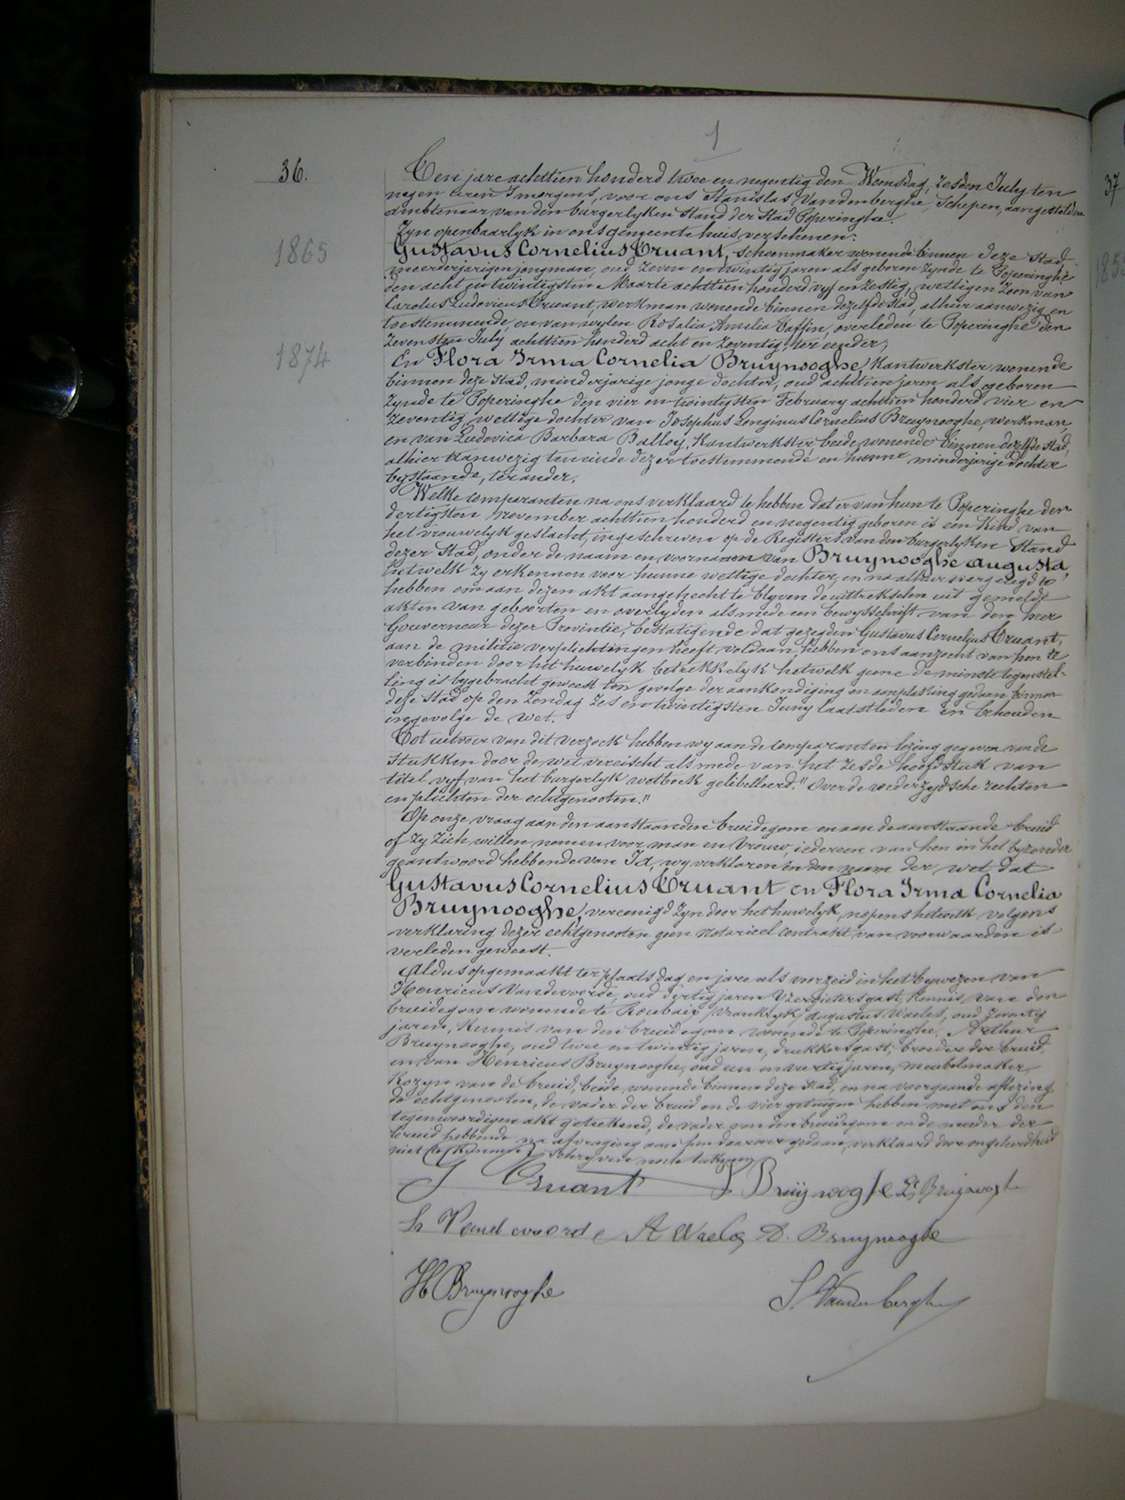 1
36.
Ten jare achttien honderd twee en negentig den Woensdag, zesden July ten
negen uren 's morgens, voor ons Stanislas Vandenberghe Schepen, aangestelden
ambtenaar van den burgerlyken stand der Stad Poperinghe.
Zyn openbaarlyk in ons gemeente huis verschenen:
1865
Gustavus Cornelius Cruant, schoenmaker wonende binnen deze Stad
meerderjarigen jongman, oud zeven en twintig jaren als geboren zynde te Poperinghe
den acht en twintigsten Maarte achttien honderd vyf en zestig, wettigen zoon van
Carolus Ludovicus Cruant, werkman wonende binnen dezelfde stad, alhier aanwezig en
toestemmende, en van wylen Rosalia Amelia Taffin, overleden te Poperinghe den
zevensten July achttien honderd acht en zeventig, ter eender,
1874
En Flora Irma Cornelia Bruynooghe, Kantwerkster wonende
binnen deze Stad, minderjarige jonge dochter, oud achttien jaren als geboren
zynde te Poperinghe den vier en twintigsten February achttien honderd vier en
zeventig, wettige dochter van Josephus Longinus Cornelius Bruynooghe, werkman,
en van Ludovica Barbara Balloÿ, Kantwerkster beide wonende binnen dezelfde stad,
alhier aanwezig ten einde dezer toestemmende en hunne minderjarige dochter
bystaande, ter ander.
Welke comparanten na ons verklaard te hebben dat er van hun te Poperinghe den
dertigsten November achttien honderd en negentig geboren is een Kind van
het vrouwelyk geslacht, ingeschreven op de Registers van den burgerlyken Stand
dezer Stad, onder de naam en voornaam van Bruynooghe Augusta,
hetwelk zy erkennen voor hunne wettige dochter, en na alhier neergelegd te
hebben om aan dezen akt aangehecht te blyven de uittrekselen uit gemelde
akten van geboorten en overlyden alsmede een bewysschrift van den heer
Gouverneur dezer Provintie, bestatigende dat gezegden Gustavus Cornelius Cruant,
aan de militie verplichtingen heeft voldaan, hebben ons aanzocht van hen te
verbinden door het huwelyk betrekkelyk hetwelk geene de minste tegenstel-
ling is bygebracht geweest ten gevolge der aankondiging en aanplakking gedaan binnen
deze stad op den Zondag zes en twintigsten Juny laatstleden en behouden
ingevolge de wet.
Tot uitvoer van dit verzoek hebben wy aan de comparanten lezing gegeven van de
stukken door de wet vereischt alsmede van het zesde hoofdstuk van
titel vyf van het burgerlyk wetboek gelibelleerd "Over de wederzydsche rechten
en plichten der echtgenooten."
Op onze vraag aan den aanstaanden bruidegom en aan de aanstaande bruid
of zy zich willen nemen voor man en vrouw, iedereen van hen in het byzonder
geantwoord hebbende van Ja, wy verklaren in den naam der wet, dat
Gustavus Cornelius Cruant en Flora Irma Cornelia
Bruynooghe, vereenigd zyn door het huwelyk, nopens hetwelk volgens
verklaring dezer echtgenooten geen notarieel contrakt van voorwaarden is
verleden geweest.
Aldus opgemaakt ter plaats dag en jare als voorzeid in het bywezen van
Henricus Vandevoorde, oud dertig jaren, Kennis van den
bruidegom wonende te Roubaix (Vrankryk) Augustus Waeles, oud
jaren, Kennis van den bruidegom wonende te Poperinghe, Arthur
Bruynooghe, oud twee en twintig jaren, drukkersgast, broeder der bruid,
en van Henricus Bruynooghe, oud een en veertig jaren, meubelmaker,
Kozyn van de bruid, beide wonende binnen deze stad, en na voorgaande aflezing
de echtgenooten, de vader der bruid en de vier getuigen hebben met ons den
tegenwoordigen akt geteekend, de vader van den bruidegom en de moeder der
bruid hebbende na afvraging aan hen daarover gedaan, verklaard door ongeleerdheid
niet te kunnen schryven noch teekenen.
G Cruant F. Bruijnooghe Lt Bruijnooghe
H Vandevoorde A Waeles A. Bruynooghe
H Bruynooghe S. Vandenberghe
37